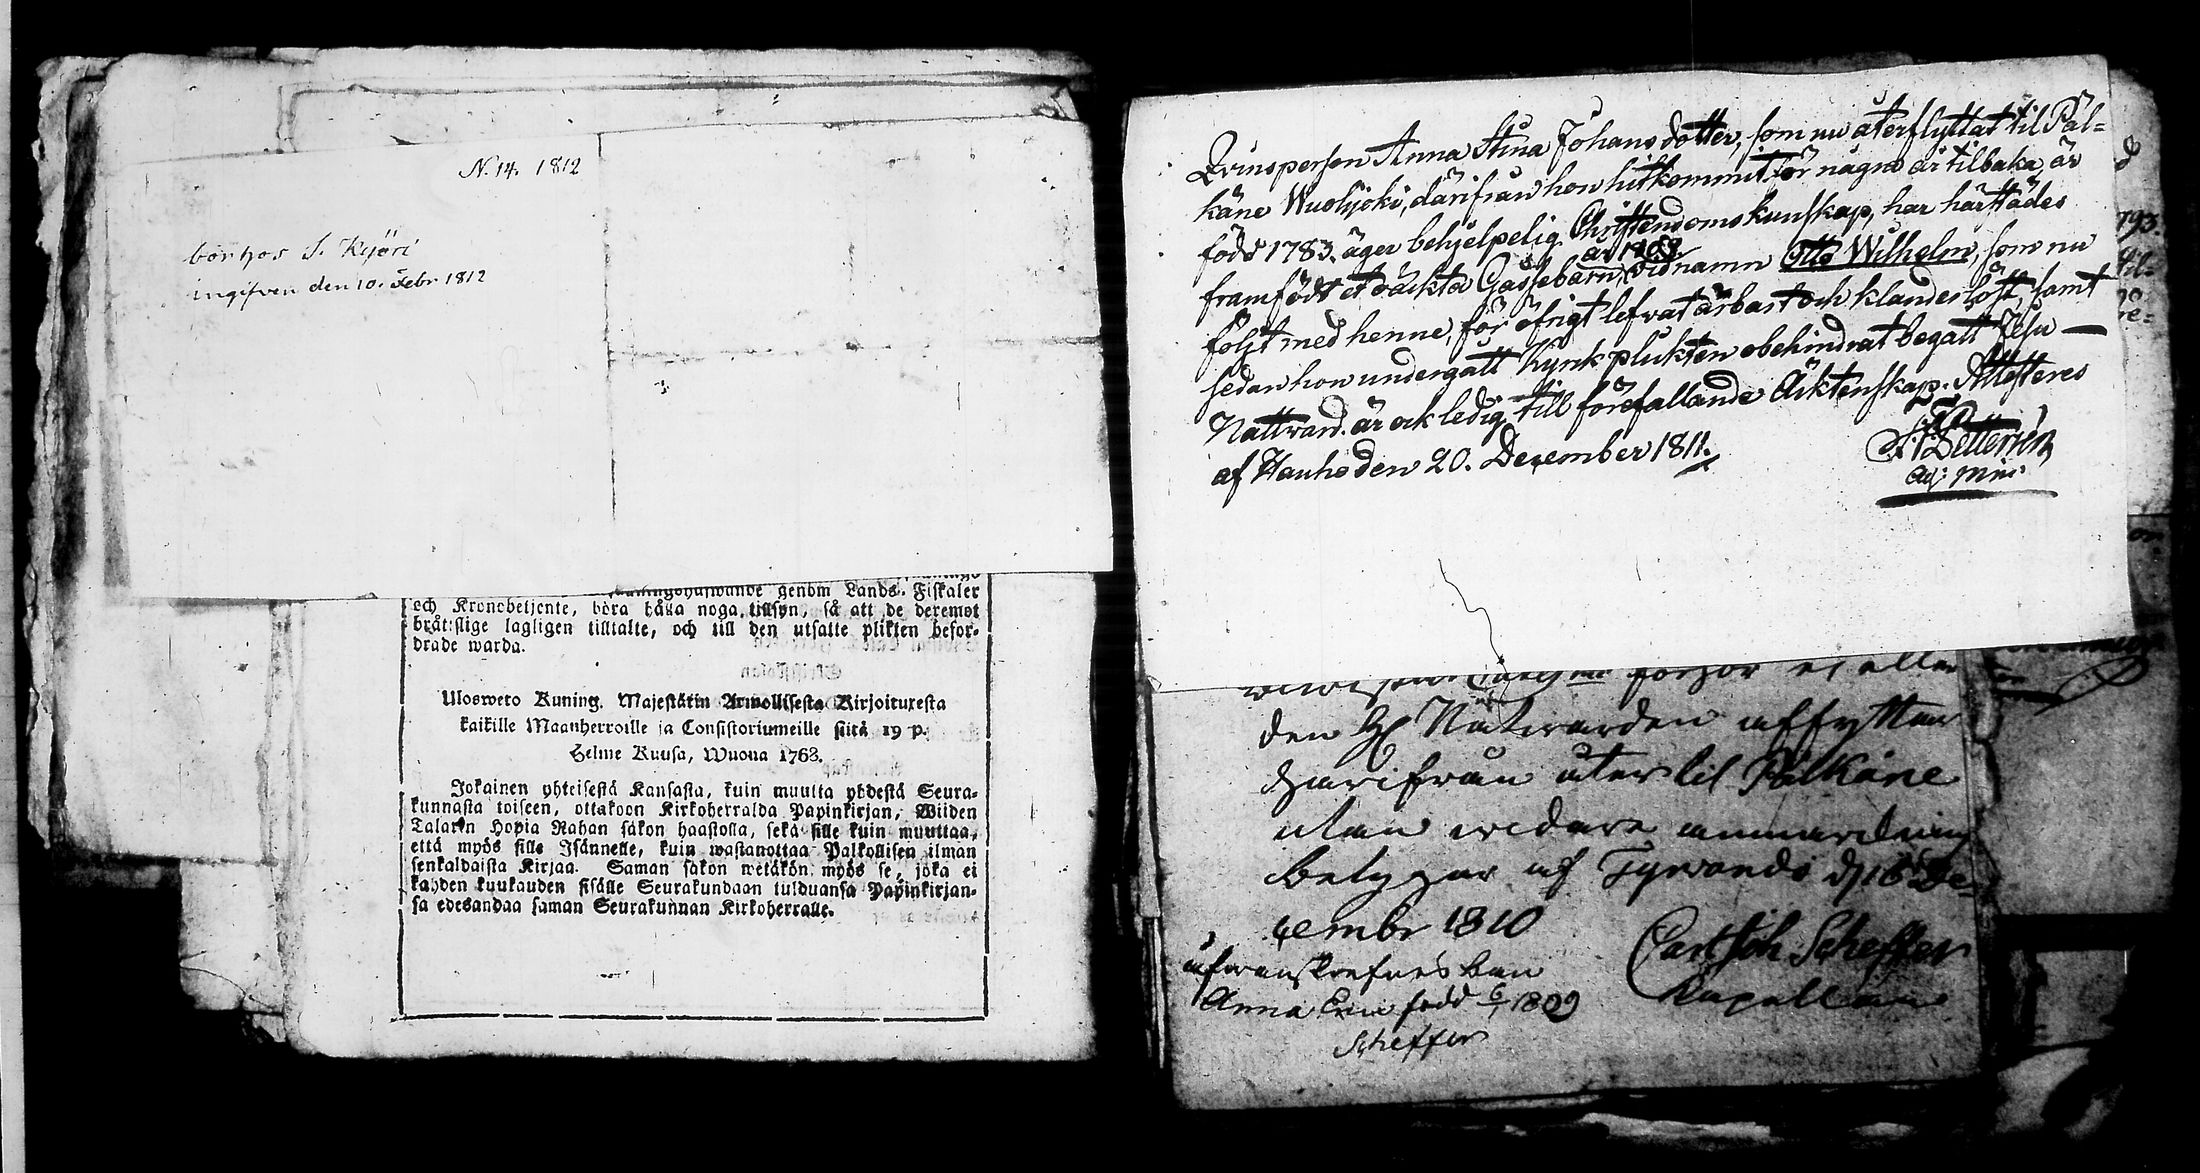 N. 14. 1812
bor hos S. Kyöri
ingifven den 10. Febr 1812
genom Lands-Fiskaler
och Kronobetjente, böra hålla noga tillsyn, så att de deremot
bråtslige lagligen tilltalte, och till den utsatte plikten befor-
drade warda.
Ulosweto Kuning. Majestätin Armollisesta Kirjoituxesta
kaikille Maanherroille ja Consistoriumeille siitä 19 p.
Helme Kuusa, Wuona 1763.
Jokainen yhteisestä Kansasta, kuin muutta yhdestä Seura-
kunnasta toiseen, ottakoon Kirkoherralda Papinkirjan, Wiiden
Talarin Hopia Rahan sakon haastolla, sekä sille kuin muuttaa,
että myös sille Isännelle, kuin wastanottaa Palkollisen ilman
senkaldaista Kirjaa. Saman sakon wetäkön myös se, joka ei
kahden kuukauden sisälle Seurakundaan tulduansa Papinkirjan-
sa edesandaa saman Seurakunnan Kirkoherralle.
Qvinspersen Anna Stina Johans dotter, som nu återflyttat til Päl-
käne Wuolijoki, därifrån hon hitkommit för några år tilbaka, är
född 1783. äger behjelpelig Christendomskunskap, har härstädes
år 1809.
framfödt et oäckta Gassebarn, vid namn Otto Wilhelm, som nu
följt med henne, för öfrigt lefvat ärbart och klanderlöst, samt
sedan hon undergått Kyrkoplikten obehindrat begått Jesu
Nattvard. är ock ledig till förefallande Äktenskap. Attesteres
af Hauho den 20. December 1811.
Adj: Min:
den H Nattwarden afflyttar
härifrån åter til Pälkäne
utan widare anmärkning
Betygar af Tyrwändö d 16 De-
cembr 1810
Carl Joh. Scheffer
Kapellan
Anna född 6/1 1809
Scheffer